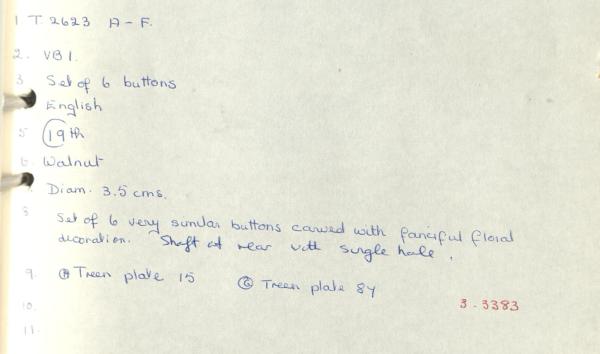 1 T. 2623 A - F.
2. VB1.
3 Set of 6 buttons
English
5 19th
6. Walnut
Diam. 3.5 cms.
8 Set of 6 very similar buttons carved with fanciful floral
decoration. Shaft at rear with single hole.
9. Treen plate 15 Treen plate 84
3.3383
10.
11.